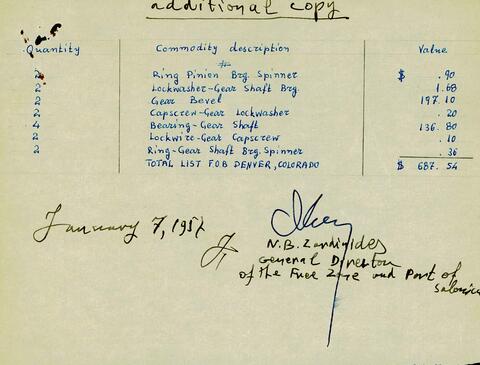 additional copy
Quantity Commodity description Value
2 Ring Pinion Brg. Spinner $ .90
2 Lockwasher-Gear Shaft Brg. 1.68
2 Gear Bevel 197.10
2 Capscrew-Gear Lockwasher .20
4 Bearing-Gear Shaft 136.80
2 Lockwire-Gear Capscrew .10
2 Ring-Gear Shaft Brg. Spinner .36
TOTAL LIST F.O.B DENVER, COLORADO $ 687.54
January 7, 1951
N.B.
General Director
of the Free Zone and Port of
Salonica